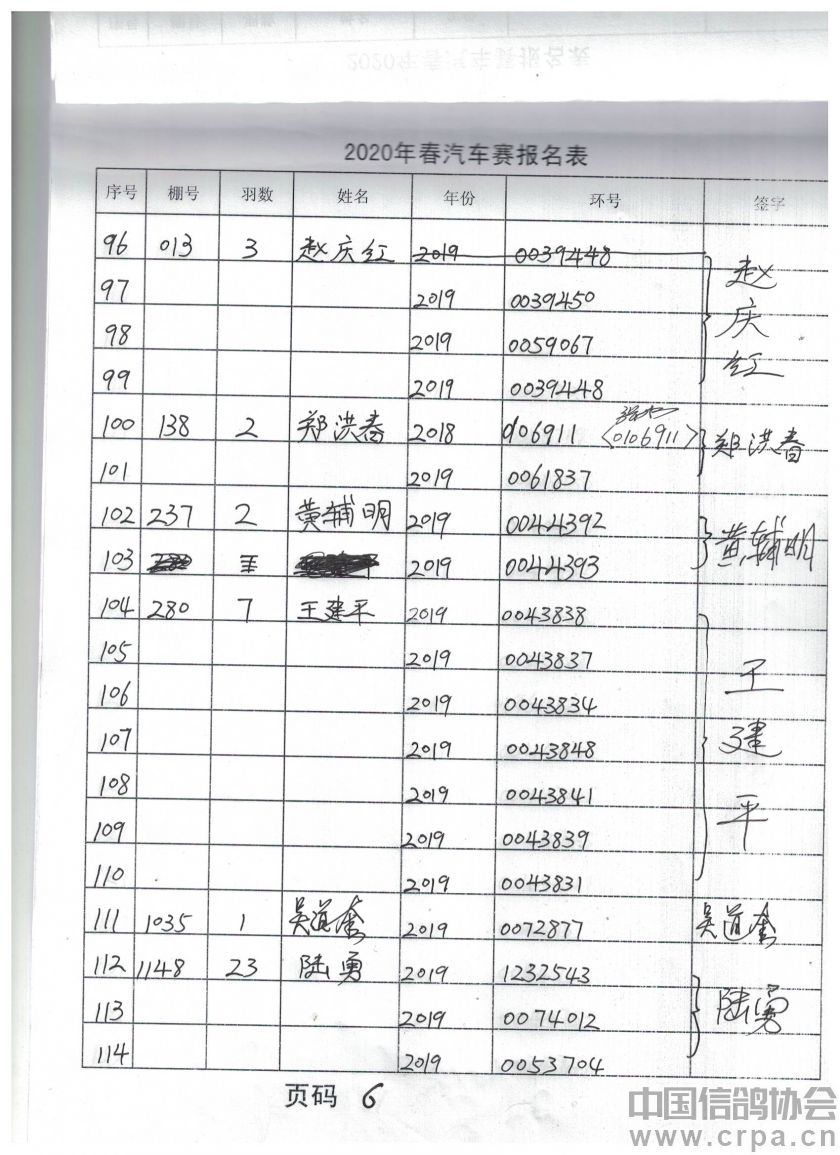 2020年春汽车赛报名表
序号 棚号 羽数 姓名 年份 环号 签字
96 013 3 赵庆红 2019 0039448 赵庆红
97 2019 0039450
98 2019 0059067
99 2019 0039448
100 138 2 郑洪春 2018 0106911 <0106911> 郑洪春
101 2019 0061837
102 237 2 黄辅明 2019 0044392 黄辅明
103 2019 0044393
104 280 7 王建平 2019 0043838 王建平
105 2019 0043837
106 2019 0043834
107 2019 0043848
108 2019 0043841
109 2019 0043839
110 2019 0043831
111 1035 1 吴道奎 2019 0072877 吴道奎
112 1148 23 陆勇 2019 1232543 陆勇
113 2019 0074012
114 2019 0053704
页码 6
中国信鸽协会
www.crpa.cn